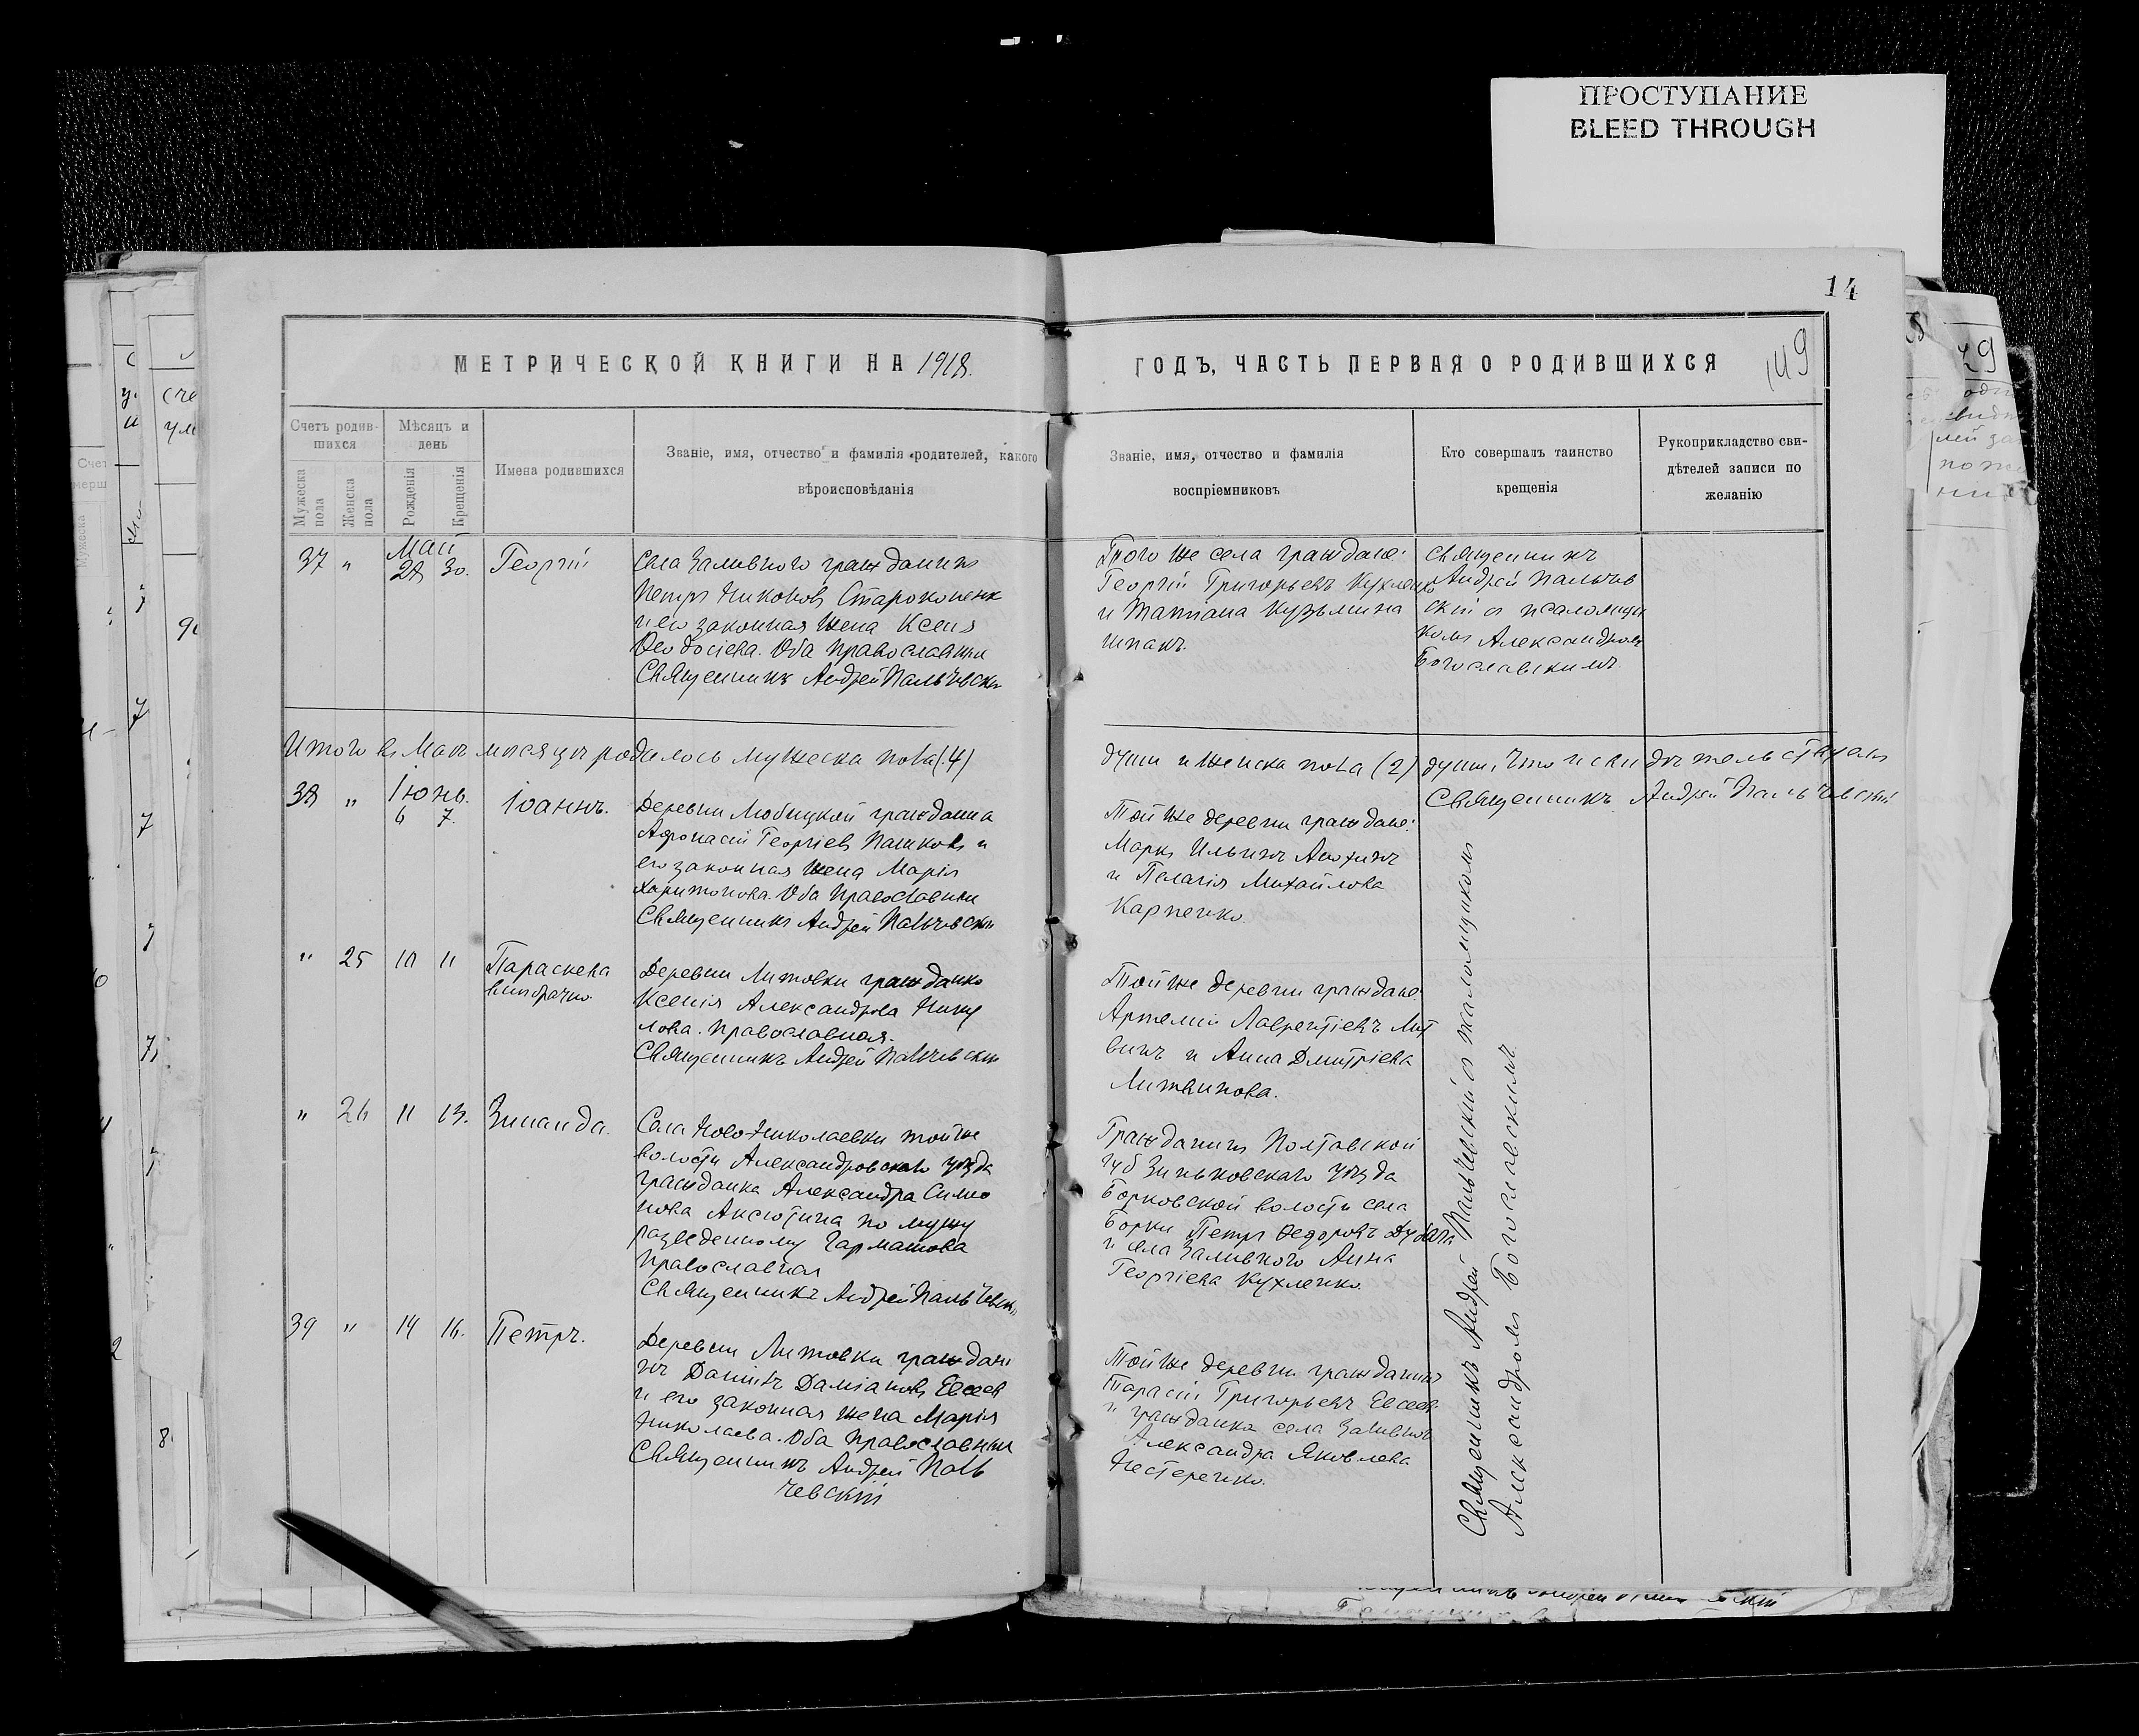 ПРОСТУПАНИЕ
BLEED THROUGH
14
149
МЕТРИЧЕСКОЙ КНИГИ НА 1918.
ГОДЪ, ЧАСТЬ ПЕРВАЯ О РОДИВШИХСЯ
Счетъ родив-
шихся
Мужеска
пола
Женска
пола
Мѣсяцъ и
день
Рожденія
Крещенія
Имена родившихся
Званіе, имя, отчество и фамилія родителей, какого
вѣроисповѣданія
Званіе, имя, отчество и фамилія
воспріемниковъ
Кто совершалъ таинство
крещенія
Рукоприкладство сви-
дѣтелей записи по
желанію
Май
37 " 28 30. Георгій
Села Заливного гражданинъ
Петръ Никоновъ
и его законная жена Ксенія
Феодосіева. Оба православныи
Священникъ Андрей Пальчевскі
Того же села граждане:
Георгій Григорьевъ Кухленко
и Татіана Кузьмина
шпакъ.
Священникъ
Андрей Пальчев
скій съ псаломщи
комъ Александромъ
Богославскимъ.
Итого въ Маѣ мѣсяцѣ родилось мужеска пола (4)
души и женска пола (2) души, Что и свидѣтельствуемъ
Священникъ Андрей Пальчевскій
Іюнь.
38 " 6 7. Іоаннъ.
Деревни Любицкой гражданина
Афонасій Георгіевъ Пашковъ и
его законная жена Марія
Харитонова. Оба православныи
Священникъ Андрей Пальчевскій
Той же деревни граждане:
Маркъ Ильинъ
и Пелагія Михайлова
Карпенко.
" 25 10 11 Параскева
внѣбрачно.
Деревни Литовки гражданко
Ксенія Александрова Нику
лова. православная.
Священникъ Андрей Пальчевскій
Той же деревни граждане:
Артемій Лаврентіевъ Лит
винъ и Анна Дмитріева
Литвинова.
" 26 11 13. Зинаида.
Села Ново-Николаевки той же
волости Александровскаго уѣзда
гражданка Александра Симо
нова Аксютина по мужу
разведенному Гармашова
православная
Священникъ Андрей Пальчевск
Гражданинъ Полтавской
губ Зиньковскаго уѣзда
Борковской волости села
Борки Петръ Федоровъ
и села Заливного Анна
Георгіева Кухленко.
39 " 14 16. Петръ.
Деревни Литовки граждани
нъ Даніилъ Даміановъ Евсеев
и его законная жена Марія
Николаева. Оба православныи
Священникъ Андрей Паль
чевскій
Той же деревни гражданинъ
Тарасій Григорьевъ Евсеев
и гражданка села Заливного
Александра Яковлева
Нестеренко.
Священникъ Андрей Пальчевскій съ псаломщикомъ
Александромъ Богославскимъ.